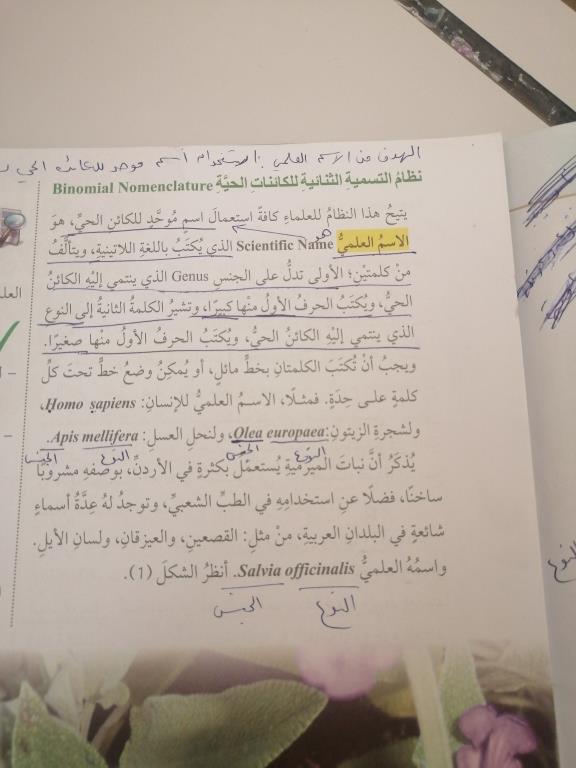 الهدف من الاسم العلمي: استخدام اسم موحد للكائن الحي
نظامُ التسميةِ الثنائيةِ للكائناتِ الحيَّةِ Binomial Nomenclature
يتيحُ هذا النظامُ للعلماءِ كافةً استعمالَ اسمٍ مُوحَّدٍ للكائنِ الحيِّ، هوَ
هو
الاسمُ العلميُّ Scientific Name الذي يُكتَبُ باللغةِ اللاتينيةِ، ويتألَّفُ
منْ كلمتيْنِ؛ الأولى تدلُّ على الجنسِ Genus الذي ينتمي إليْهِ الكائنُ
الحيُّ، ويُكتَبُ الحرفُ الأولُ منْها كبيرًا، وتشيرُ الكلمةُ الثانيةُ إلى النوعِ
الذي ينتمي إليْهِ الكائنُ الحيُّ، ويُكتَبُ الحرفُ الأولُ منْها صغيرًا.
ويجبُ أنْ تُكتَبَ الكلمتانِ بخطٍّ مائلٍ، أو يُمكِنُ وضعُ خطٍّ تحتَ كلِّ
كلمةٍ على حِدَةٍ. فمثلًا، الاسمُ العلميُّ للإنسانِ: Homo sapiens،
ولشجرةِ الزيتونِ: Olea europaea، ولنحلِ العسلِ: Apis mellifera.
النوع الجنس النوع الجنس
يُذكَرُ أنَّ نباتَ الميرميةِ يُستعمَلُ بكثرةٍ في الأردنِّ، بوصفِهِ مشروبًا
ساخنًا، فضلًا عنِ استخدامِهِ في الطبِّ الشعبيِّ، وتوجدُ لهُ عِدَّةُ أسماءٍ
شائعةٍ في البلدانِ العربيةِ، منْ مثلِ: القصعينِ، والعيزقانِ، ولسانِ الأيلِ.
واسمُهُ العلميُّ Salvia officinalis. أنظرُ الشكلَ (1).
النوع الجنس
العلم
النوع